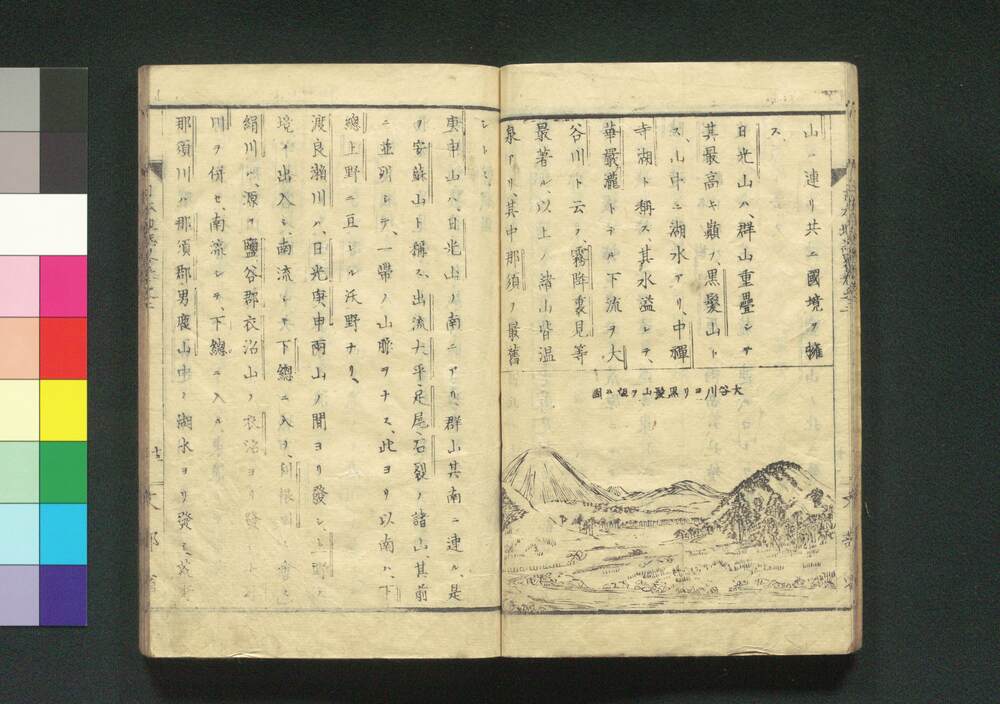 山ニ連リ共ニ國境ヲ擁
ス
日光山ハ、群山重疊シテ
其最高キ巓ヲ、黒髪山ト
ス、山中ニ湖水アリ、中禪
寺湖ト稱ス其水溢レテ、
華嚴瀧トナル下流ヲ大
谷川ト云フ、霧降裏見等
最著ル、以上ノ諸山皆温
泉アリ、其中那須ヲ最舊
大谷川ヨリ黒髪山ヲ望ム圖
シトス、
庚申山ハ、日光山ノ南ニアリ群山其南ニ連ル、是
ヲ安蘇山ト稱ス、出流大平足尾石裂ノ諸山其前
ニ並列シテ、一帶ノ山脈ヲナス、此ヨリ以南ハ、下
總上野ニ亘レル沃野ナリ、
渡良瀬川ハ、日光庚申兩山ノ間ヨリ發シ、上野ノ
境ニ出入シ、南流シテ下總ニ入リ、利根川ニ會ス
絹川ハ、源ヲ鹽谷郡衣沼山ノ衣沼ヨリ發シ
川ヲ併セ、南流シテ、下總ニ入ル、
那須川ハ那須郡男鹿山中ノ湖水ヨリ發シ
十二
文部省